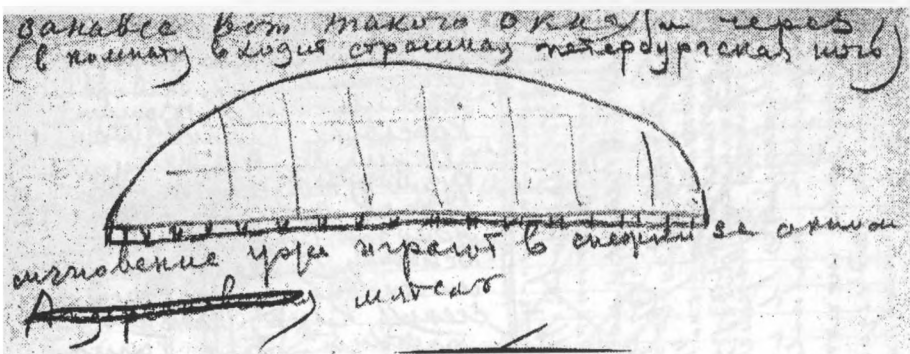 занавес вот такого окна, и через
(в комнату входит страшная петербургская ночь)
мгновение уже играют в снежки за окном
мятсат